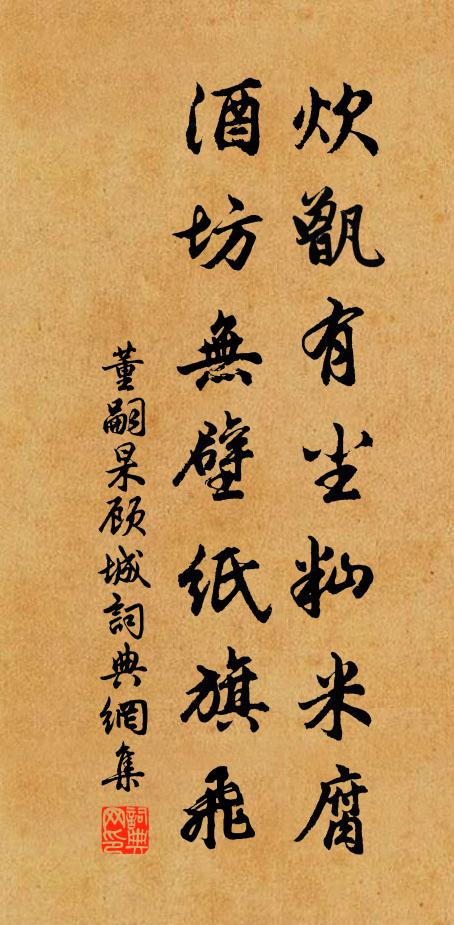 炊甑有尘籼米腐
酒坊無壁纸旗飛
董嗣杲顾城詞典網集
詞典网印